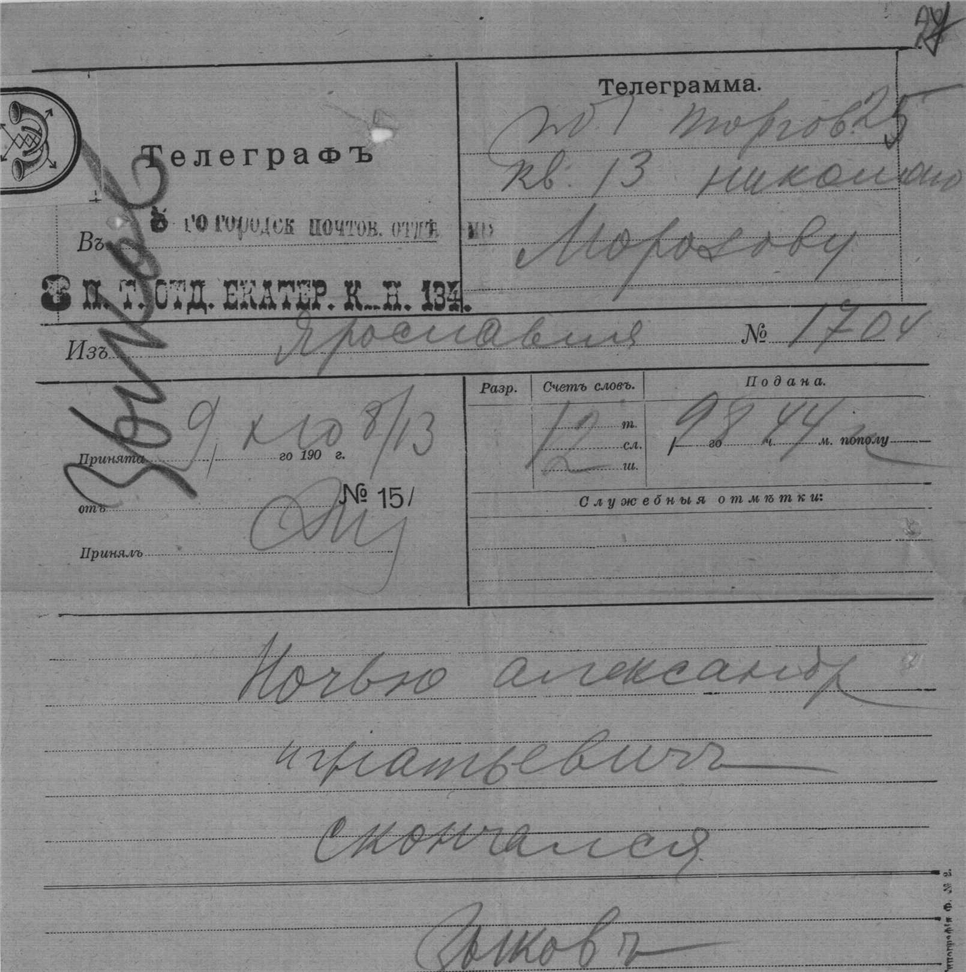 24
Телеграмма.
Торгов. 25
Телеграфъ
кв. 13 николаю
8 го городск почтов. отдѣ
Въ
Морозову
8 П. Т. ОТД. ЕКАТЕР. К. Н. 134.
Изъ Ярославля № 1704
Зыков
Разр. Счетъ словъ. Подана.
т.
12 сл. 9 го 8 ч. 44 м. пополу
ш.
Принята 9/X го 190 г. 8/13
Служебныя отмѣтки:
отъ № 15/
Принялъ
Ночью александр
игнатьевичъ
скончался
Зыковъ